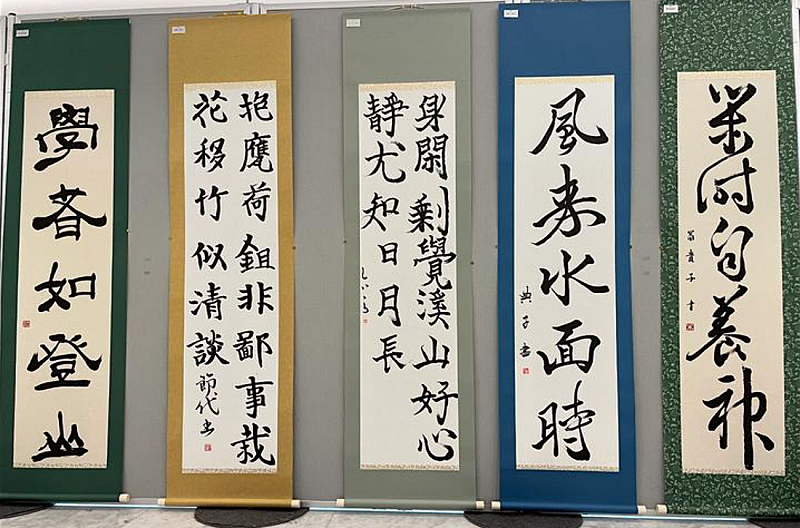 學者如登山
抱甕荷鉏非鄙事栽
花移竹似清談
節代書
身閑剩覺溪山好心
靜尤知日月長
風来水面時
典子書
時自養神